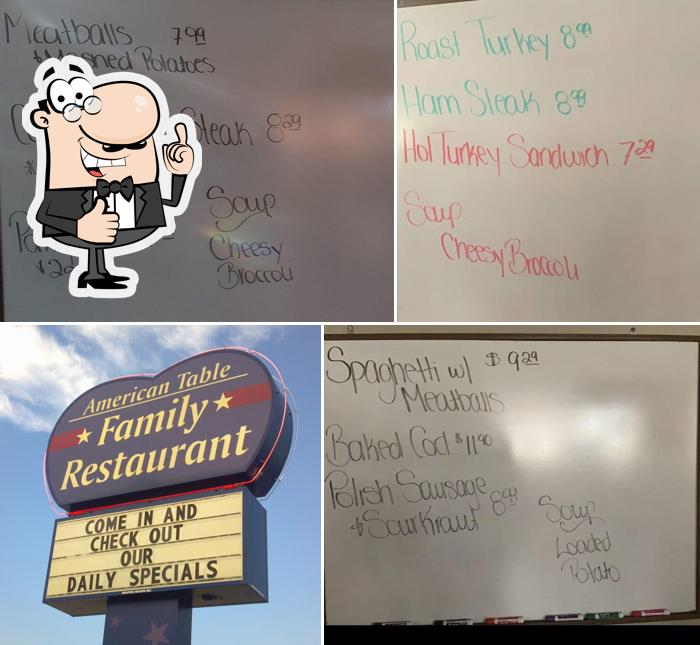 Meatballs 7.99
Mashed Potatoes
Steak 8.29
Soup
Cheesy
Broccoli
Roast Turkey 8.99
Ham Steak 8.99
Hot Turkey Sandwich 7.29
Soup
Cheesy Broccoli
American Table
Family
Restaurant
COME IN AND
CHECK OUT
OUR
DAILY SPECIALS
Spaghetti w/ $9.29
Meatballs
Baked Cod $11.90
Polish Sausage 8.99
& SourKraut
Soup
Loaded
Potato